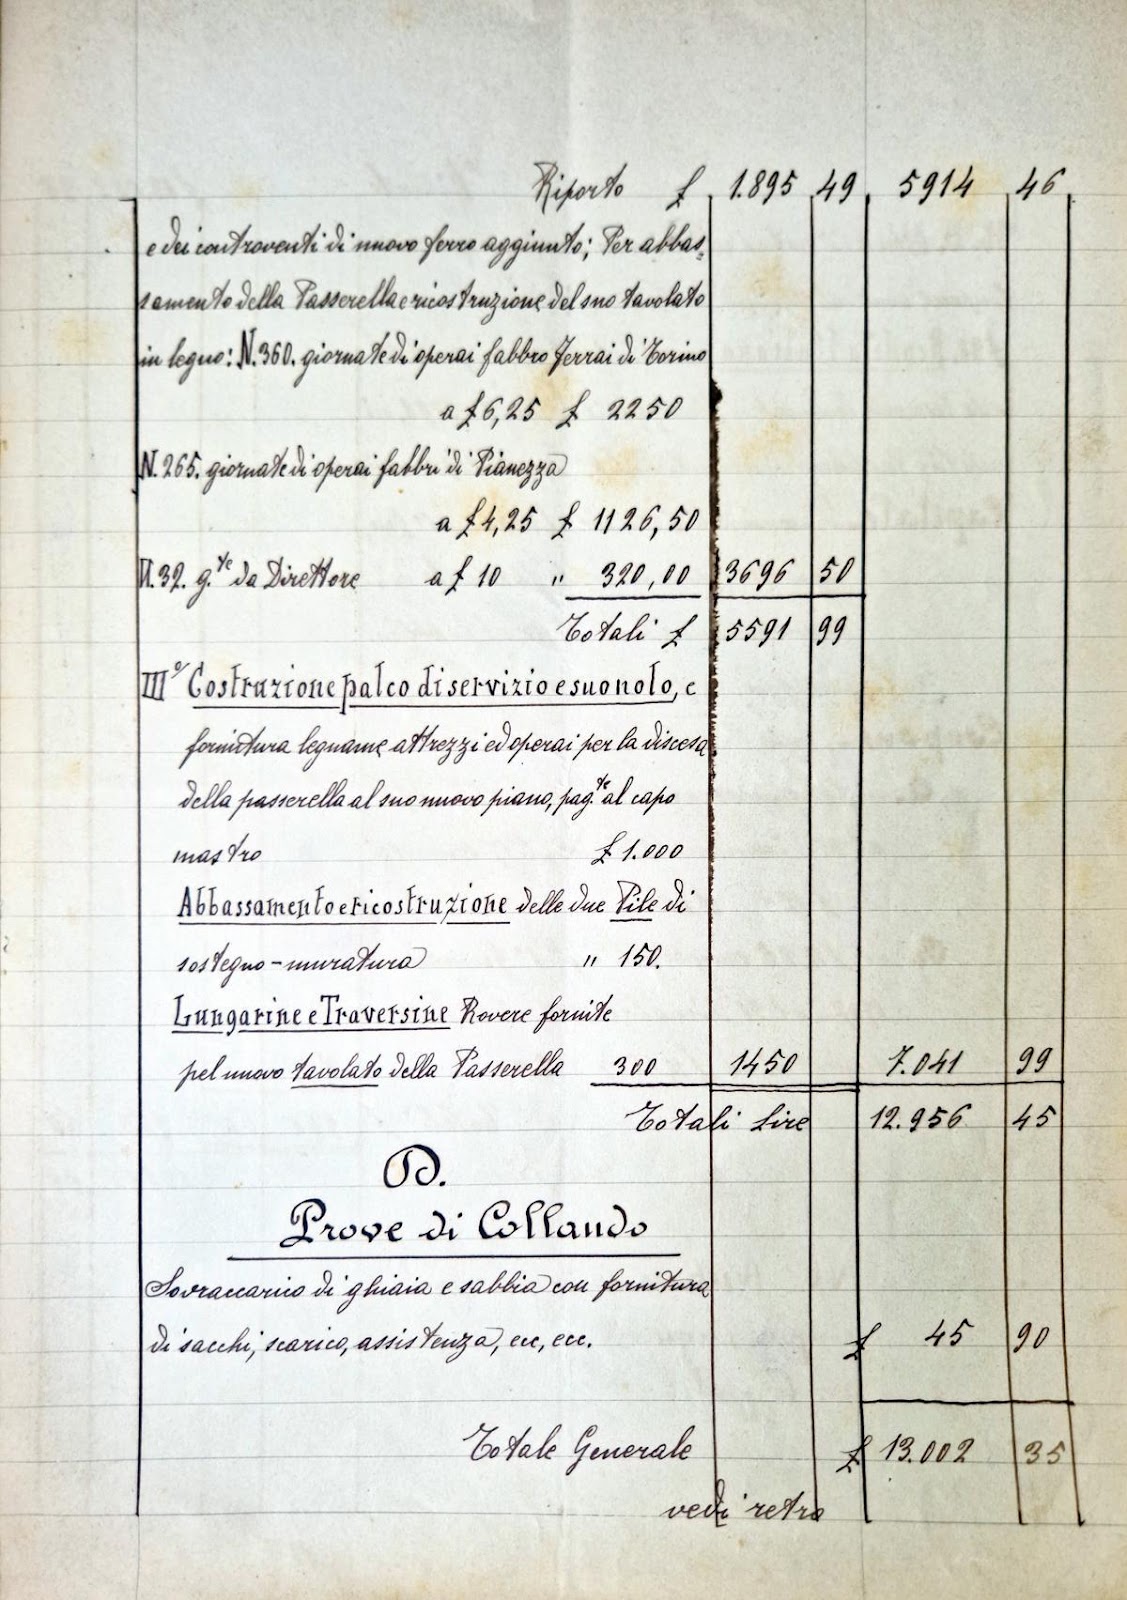 Riporto £ 1.895 49 5914 46
e dei controventi di nuovo ferro aggiunto; Per abbas=
samento della Passerella e ricostruzione del suo tavolato
in legno: N. 360. giornate di operai fabbro ferrai di Torino
a £ 6,25 £ 2250
N. 265. giornate di operai fabbri di Pianezza
a £ 4,25 £ 1126,50
N. 32. g.te da Direttore a £ 10 " 320,00 3696 50
Totali £ 5591 99
III° Costruzione palco di servizio e suo nolo, e
fornitura legname attrezzi ed operai per la discesa
della passerella al suo nuovo piano, pag.te al capo
mastro £ 1.000
Abbassamento e ricostruzione delle due Pile di
sostegno - muratura " 150.
Lungarine e Traversine Rovere fornite
pel nuovo tavolato della Passerella 300 1450 7.041 99
Totali Lire 12.956 45
D.
Prove di Collando
Sovraccarico di ghiaia e sabbia con fornitura
di sacchi, scarico, assistenza, ecc, ecc. £ 45 90
Totale Generale £ 13.002 35
vedi retro